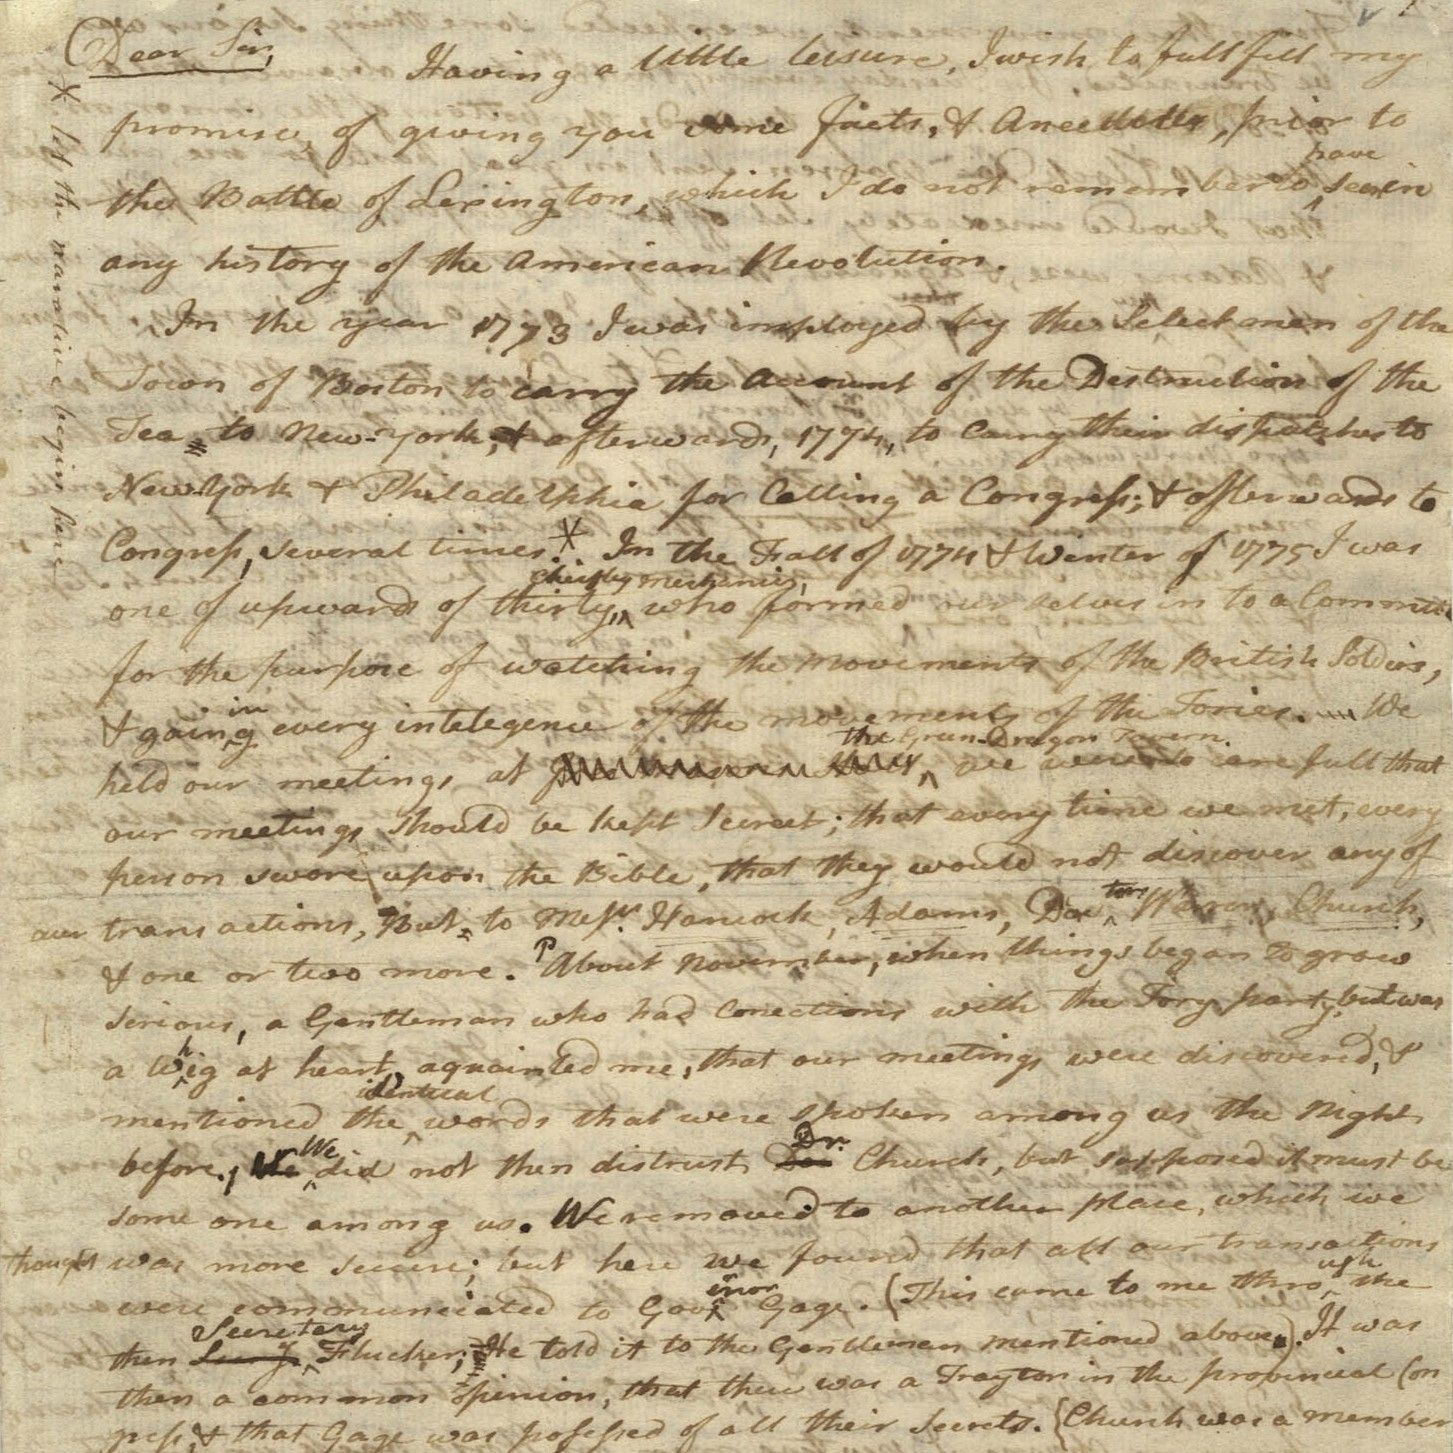 Dear Sir,
Having a little leisure, I wish to fullfill my
promise, of giving you some facts, & Anecdotes, prior to
have
the Battle of Lexington, which I do not remember to seen in
any history of the American Revolution.
In the year 1773 I was imployed by the Selectmen of the
Town of Boston to carry the Account of the Destruction of the
Tea to New-York; & afterwards, 1774, to Carry their dispatches to
New-York & Philadelphia for Calling a Congress; & afterwards to
Congress, several times.* In the Fall of 1774 & Winter of 1775 I was
chiefly mechanics,
one of upwards of thirty, who formed our selves in to a Committee
for the purpose of watching the movements of the British Soldiers,
in
& gaing every intelegence of the movements of the Tories. We
the Green-Dragon Tavern.
held our meetings at we were so carefull that
our meetings should be kept Secret; that every time we met, every
person swore upon the Bible, that they would not discover any of
our transactions, But to Messrs. Hancock, Adams, Doctors Warren, Church,
& one or two more. ¶ About November, when things began to grow
Serious, a Gentleman who had Conections with the Tory party, but was
h
a Wig at heart, aquainted me, that our meetings were discovered, &
identical
mentioned the words that were spoken among us the Night
We Dr.
before. We did not then distrust Doc Church, but supposed it must be
some one among us. We removed to another place, which we
thought was more secure; but here we found that all our transactions
ernor ugh
were communicated to Gov Gage. (This came to me thro the
Secretary
then Secy Flucker; He told it to the Gentleman mentioned above). It was
then a common opinion, that there was a Traytor in the provincial Con
gress, & that Gage was posessed of all their Secrets. (Church was a member
* let the narative begin here